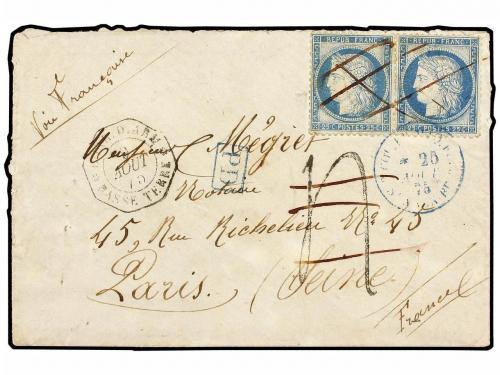 REPUB. FRANC. REPUB. FRANC.
25 C. POSTES 25 C. 25 C. POSTES 25 C.
Voie Française
AOUT
75
BASSE TERRE
Monsieur Mégret
PD
25
AOUT
75
Notaire
45, Rue Richelieu No. 45
Paris. (Seine)
France